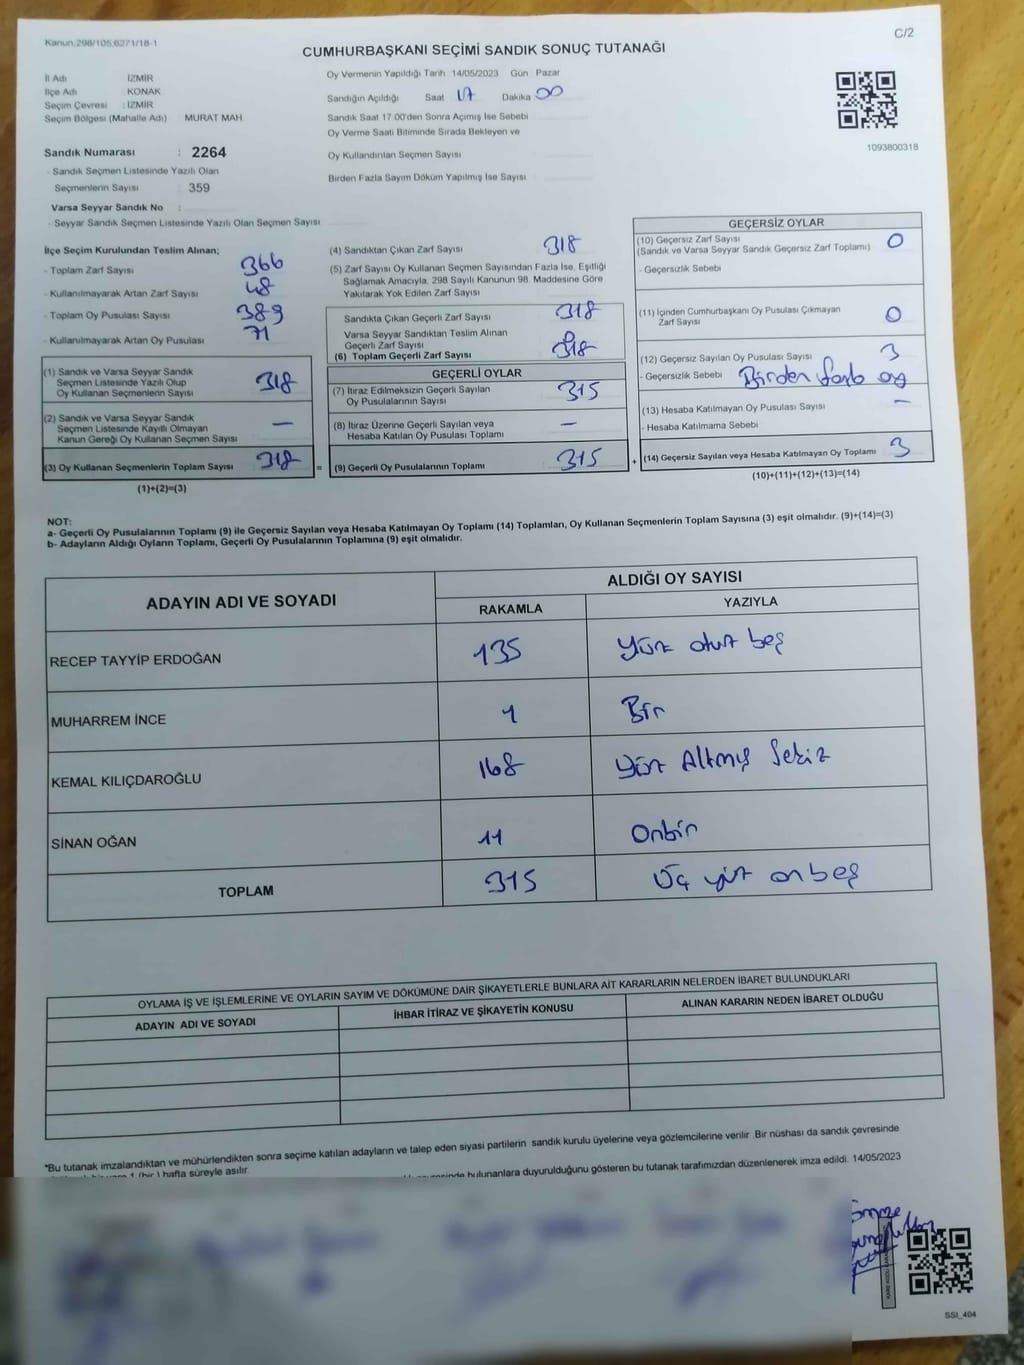 Kanun.298/105,6271/18-1
C/2
CUMHURBAŞKANI SEÇİMİ SANDIK SONUÇ TUTANAĞI
İl Adı : İZMİR
İlçe Adı : KONAK
Seçim Çevresi : İZMİR
Seçim Bölgesi (Mahalle Adı) MURAT MAH.
Sandık Numarası : 2264
- Sandık Seçmen Listesinde Yazılı Olan
Seçmenlerin Sayısı : 359
Varsa Seyyar Sandık No :
- Seyyar Sandık Seçmen Listesinde Yazılı Olan Seçmen Sayısı
Oy Vermenin Yapıldığı Tarih 14/05/2023 Gün Pazar
Sandığın Açıldığı Saat 17 Dakika 00
Sandık Saat 17.00'den Sonra Açımış İse Sebebi
Oy Verme Saati Bitiminde Sırada Bekleyen ve
Oy Kullandırılan Seçmen Sayısı
Birden Fazla Sayım Döküm Yapılmış İse Sayısı
1093800318
İlçe Seçim Kurulundan Teslim Alınan;
- Toplam Zarf Sayısı 366
- Kullanılmayarak Artan Zarf Sayısı 48
- Toplam Oy Pusulası Sayısı 389
- Kullanılmayarak Artan Oy Pusulası 71
(1) Sandık ve Varsa Seyyar Sandık
Seçmen Listesinde Yazılı Olup
Oy Kullanan Seçmenlerin Sayısı 318
(2) Sandık ve Varsa Seyyar Sandık
Seçmen Listesinde Kayıtlı Olmayan
Kanun Gereği Oy Kullanan Seçmen Sayısı —
(3) Oy Kullanan Seçmenlerin Toplam Sayısı 318
(1)+(2)=(3)
(4) Sandıktan Çıkan Zarf Sayısı 318
(5) Zarf Sayısı Oy Kullanan Seçmen Sayısından Fazla İse, Eşitliği
Sağlamak Amacıyla, 298 Sayılı Kanunun 98. Maddesine Göre
Yakılarak Yok Edilen Zarf Sayısı
Sandıkta Çıkan Geçerli Zarf Sayısı 318
Varsa Seyyar Sandıktan Teslim Alınan
Geçerli Zarf Sayısı
(6) Toplam Geçerli Zarf Sayısı 318
GEÇERLİ OYLAR
(7) İtiraz Edilmeksizin Geçerli Sayılan
Oy Pusulalarının Sayısı 315
(8) İtiraz Üzerine Geçerli Sayılan veya
Hesaba Katılan Oy Pusulası Toplamı —
= (9) Geçerli Oy Pusulalarının Toplamı 315
GEÇERSİZ OYLAR
(10) Geçersiz Zarf Sayısı
(Sandık ve Varsa Seyyar Sandık Geçersiz Zarf Toplamı) 0
- Geçersizlik Sebebi
(11) İçinden Cumhurbaşkanı Oy Pusulası Çıkmayan
Zarf Sayısı 0
(12) Geçersiz Sayılan Oy Pusulası Sayısı 3
- Geçersizlik Sebebi Birden fazla oy
(13) Hesaba Katılmayan Oy Pusulası Sayısı —
- Hesaba Katılmama Sebebi
+ (14) Geçersiz Sayılan veya Hesaba Katılmayan Oy Toplamı 3
(10)+(11)+(12)+(13)=(14)
NOT:
a- Geçerli Oy Pusulalarının Toplamı (9) ile Geçersiz Sayılan veya Hesaba Katılmayan Oy Toplamı (14) Toplamları, Oy Kullanan Seçmenlerin Toplam Sayısına (3) eşit olmalıdır. (9)+(14)=(3)
b- Adayların Aldığı Oyların Toplamı, Geçerli Oy Pusulalarının Toplamına (9) eşit olmalıdır.
ADAYIN ADI VE SOYADI
ALDIĞI OY SAYISI
RAKAMLA YAZIYLA
RECEP TAYYİP ERDOĞAN 135 Yüz otuz beş
MUHARREM İNCE 1 Bir
KEMAL KILIÇDAROĞLU 168 Yüz Altmış Sekiz
SİNAN OĞAN 11 Onbir
TOPLAM 315 Üç yüz onbeş
OYLAMA İŞ VE İŞLEMLERİNE VE OYLARIN SAYIM VE DÖKÜMÜNE DAİR ŞİKAYETLERLE BUNLARA AİT KARARLARIN NELERDEN İBARET BULUNDUKLARI
ADAYIN ADI VE SOYADI İHBAR İTİRAZ VE ŞİKAYETİN KONUSU ALINAN KARARIN NEDEN İBARET OLDUĞU
*Bu tutanak imzalandıktan ve mühürlendikten sonra seçime katılan adayların ve talep eden siyasi partilerin sandık kurulu üyelerine veya gözlemcilerine verilir. Bir nüshası da sandık çevresinde
1 (bir) hafta süreyle asılır.
bulunanlara duyurulduğunu gösteren bu tutanak tarafımızdan düzenlenerek imza edildi. 14/05/2023
SSI_404